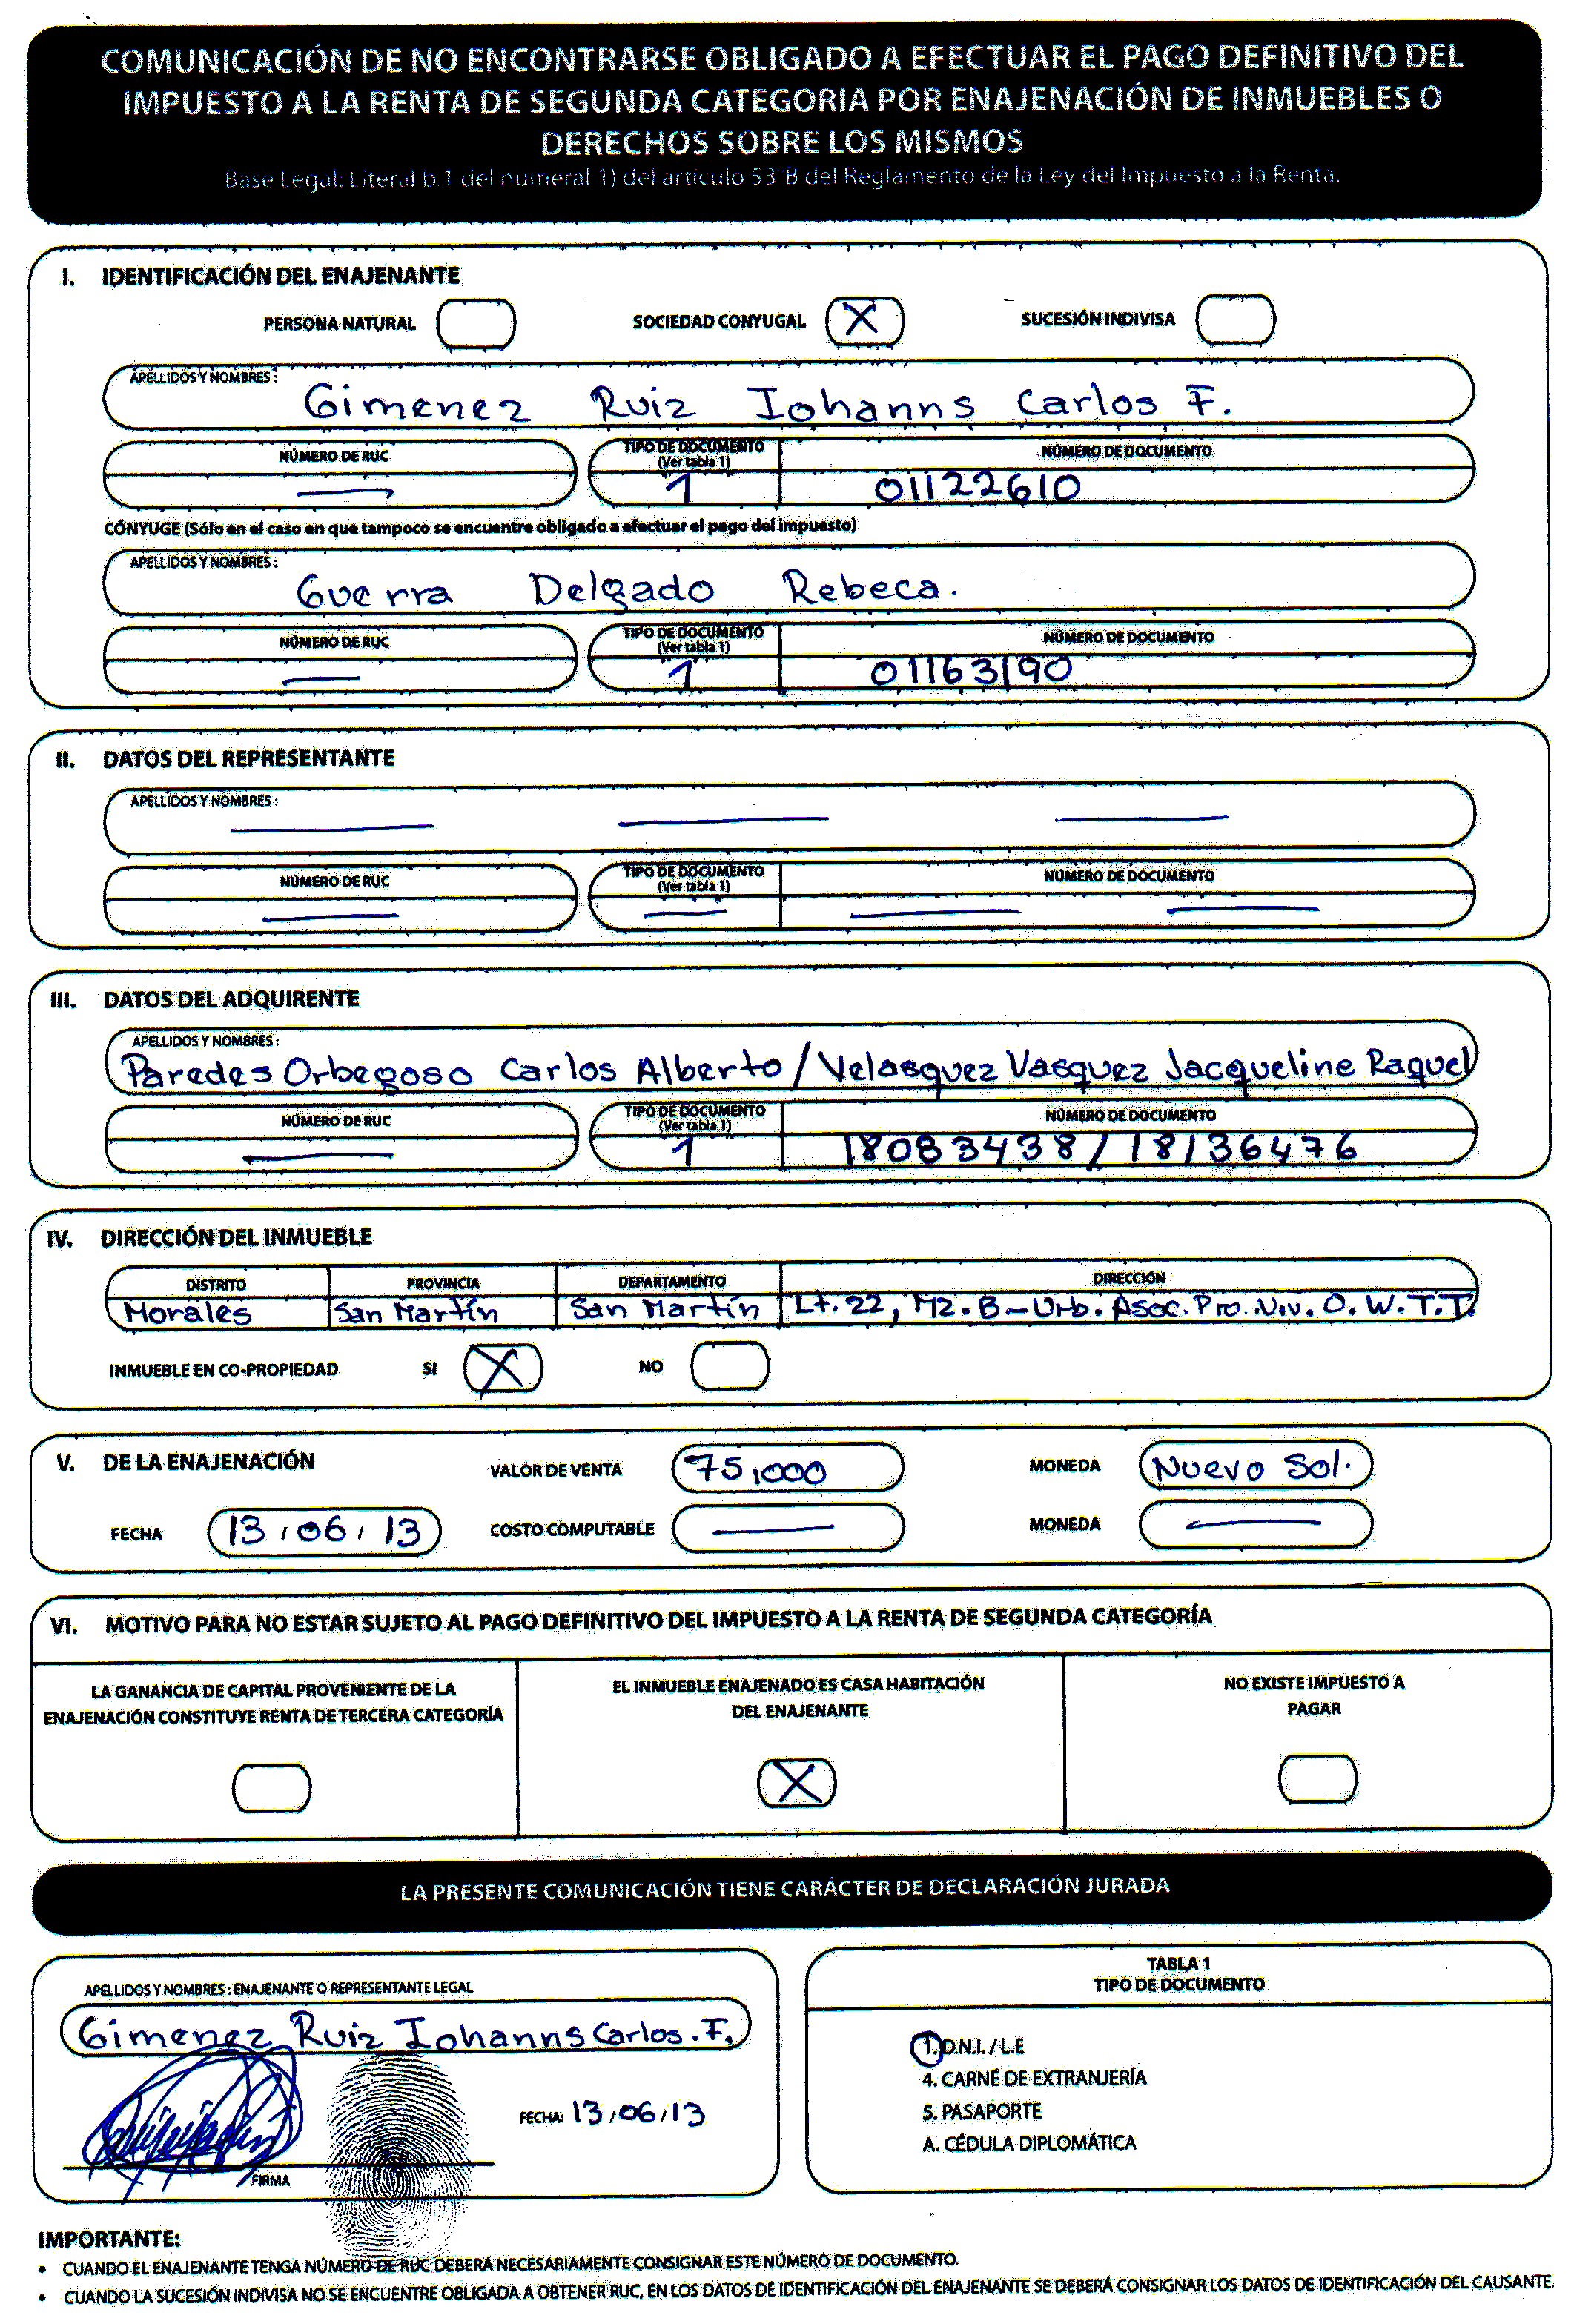 COMUNICACIÓN DE NO ENCONTRARSE OBLIGADO A EFECTUAR EL PAGO DEFINITIVO DEL
IMPUESTO A LA RENTA DE SEGUNDA CATEGORIA POR ENAJENACIÓN DE INMUEBLES O
DERECHOS SOBRE LOS MISMOS
Base Legal: Literal b.1 del numeral 1) del artículo 53°B del Reglamento de la Ley del Impuesto a la Renta.
I. IDENTIFICACIÓN DEL ENAJENANTE
PERSONA NATURAL SOCIEDAD CONYUGAL X SUCESIÓN INDIVISA
APELLIDOS Y NOMBRES :
Gimenez Ruiz Iohanns Carlos F.
NÚMERO DE RUC TIPO DE DOCUMENTO (Ver tabla 1) NÚMERO DE DOCUMENTO
— 1 01122610
CÓNYUGE (Sólo en el caso en que tampoco se encuentre obligado a efectuar el pago del impuesto)
APELLIDOS Y NOMBRES :
Guerra Delgado Rebeca.
NÚMERO DE RUC TIPO DE DOCUMENTO (Ver tabla 1) NÚMERO DE DOCUMENTO
— 1 01163190
II. DATOS DEL REPRESENTANTE
APELLIDOS Y NOMBRES :
— — —
NÚMERO DE RUC TIPO DE DOCUMENTO (Ver tabla 1) NÚMERO DE DOCUMENTO
— — — —
III. DATOS DEL ADQUIRENTE
APELLIDOS Y NOMBRES :
Paredes Orbegoso Carlos Alberto / Velasquez Vasquez Jacqueline Raquel
NÚMERO DE RUC TIPO DE DOCUMENTO (Ver tabla 1) NÚMERO DE DOCUMENTO
— 1 18083438 / 18136476
IV. DIRECCIÓN DEL INMUEBLE
DISTRITO PROVINCIA DEPARTAMENTO DIRECCIÓN
Morales San Martín San Martín Lt. 22, Mz. B - Urb. Asoc. Pro. Viv. O. W. T. T.
INMUEBLE EN CO-PROPIEDAD SI X NO
V. DE LA ENAJENACIÓN VALOR DE VENTA 75,000 MONEDA Nuevo Sol.
FECHA 13 / 06 / 13 COSTO COMPUTABLE — MONEDA —
VI. MOTIVO PARA NO ESTAR SUJETO AL PAGO DEFINITIVO DEL IMPUESTO A LA RENTA DE SEGUNDA CATEGORÍA
LA GANANCIA DE CAPITAL PROVENIENTE DE LA
ENAJENACIÓN CONSTITUYE RENTA DE TERCERA CATEGORÍA
EL INMUEBLE ENAJENADO ES CASA HABITACIÓN
DEL ENAJENANTE
X
NO EXISTE IMPUESTO A
PAGAR
LA PRESENTE COMUNICACIÓN TIENE CARÁCTER DE DECLARACIÓN JURADA
APELLIDOS Y NOMBRES : ENAJENANTE O REPRESENTANTE LEGAL
Gimenez Ruiz Iohanns Carlos. F.
FECHA: 13/06/13
FIRMA
TABLA 1
TIPO DE DOCUMENTO
1. D.N.I. / L.E
4. CARNÉ DE EXTRANJERÍA
5. PASAPORTE
A. CÉDULA DIPLOMÁTICA
IMPORTANTE:
• CUANDO EL ENAJENANTE TENGA NÚMERO DE RUC DEBERÁ NECESARIAMENTE CONSIGNAR ESTE NÚMERO DE DOCUMENTO.
• CUANDO LA SUCESIÓN INDIVISA NO SE ENCUENTRE OBLIGADA A OBTENER RUC, EN LOS DATOS DE IDENTIFICACIÓN DEL ENAJENANTE SE DEBERÁ CONSIGNAR LOS DATOS DE IDENTIFICACIÓN DEL CAUSANTE.